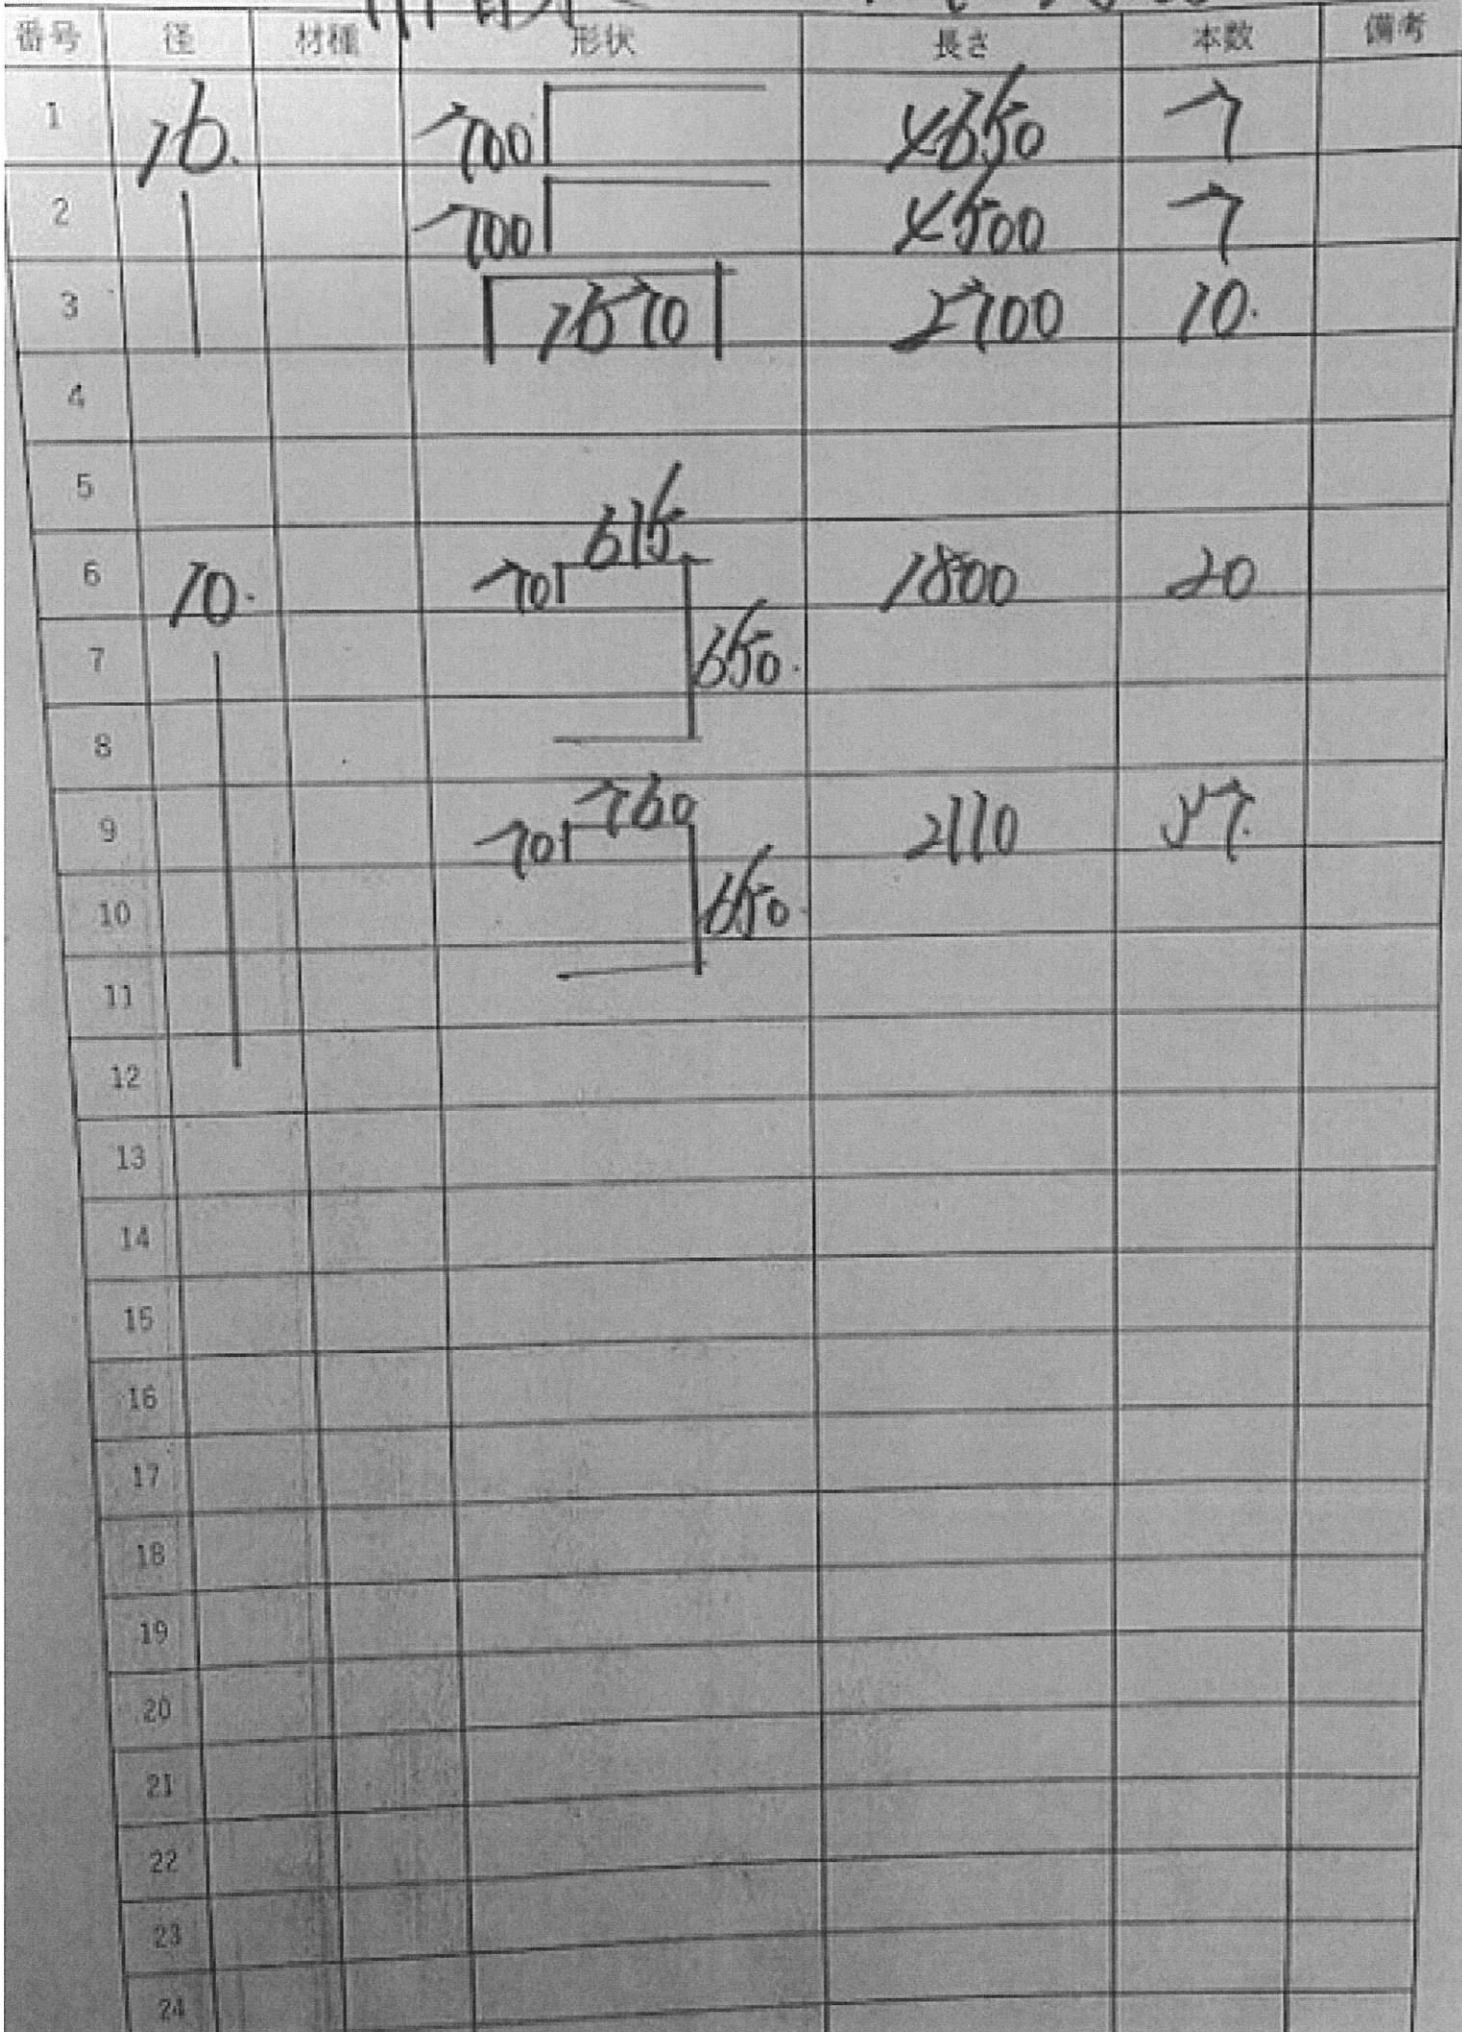 番号 径 材種 形状 長さ 本数 備考
1 16. 700 4650 7
2 700 4500 7
3 1570 2700 10.
4
5
615
6 10. 70 1800 20
7 650.
8
760
9 70 2110 37.
10 650.
11
12
13
14
15
16
17
18
19
20
21
22
23
24